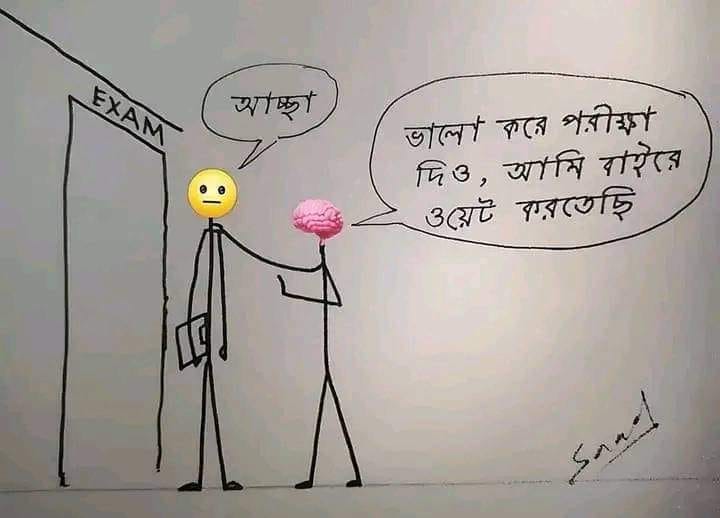 EXAM
আচ্ছা
ভালো করে পরীক্ষা
দিও, আমি বাইরে
ওয়েট করতেছি